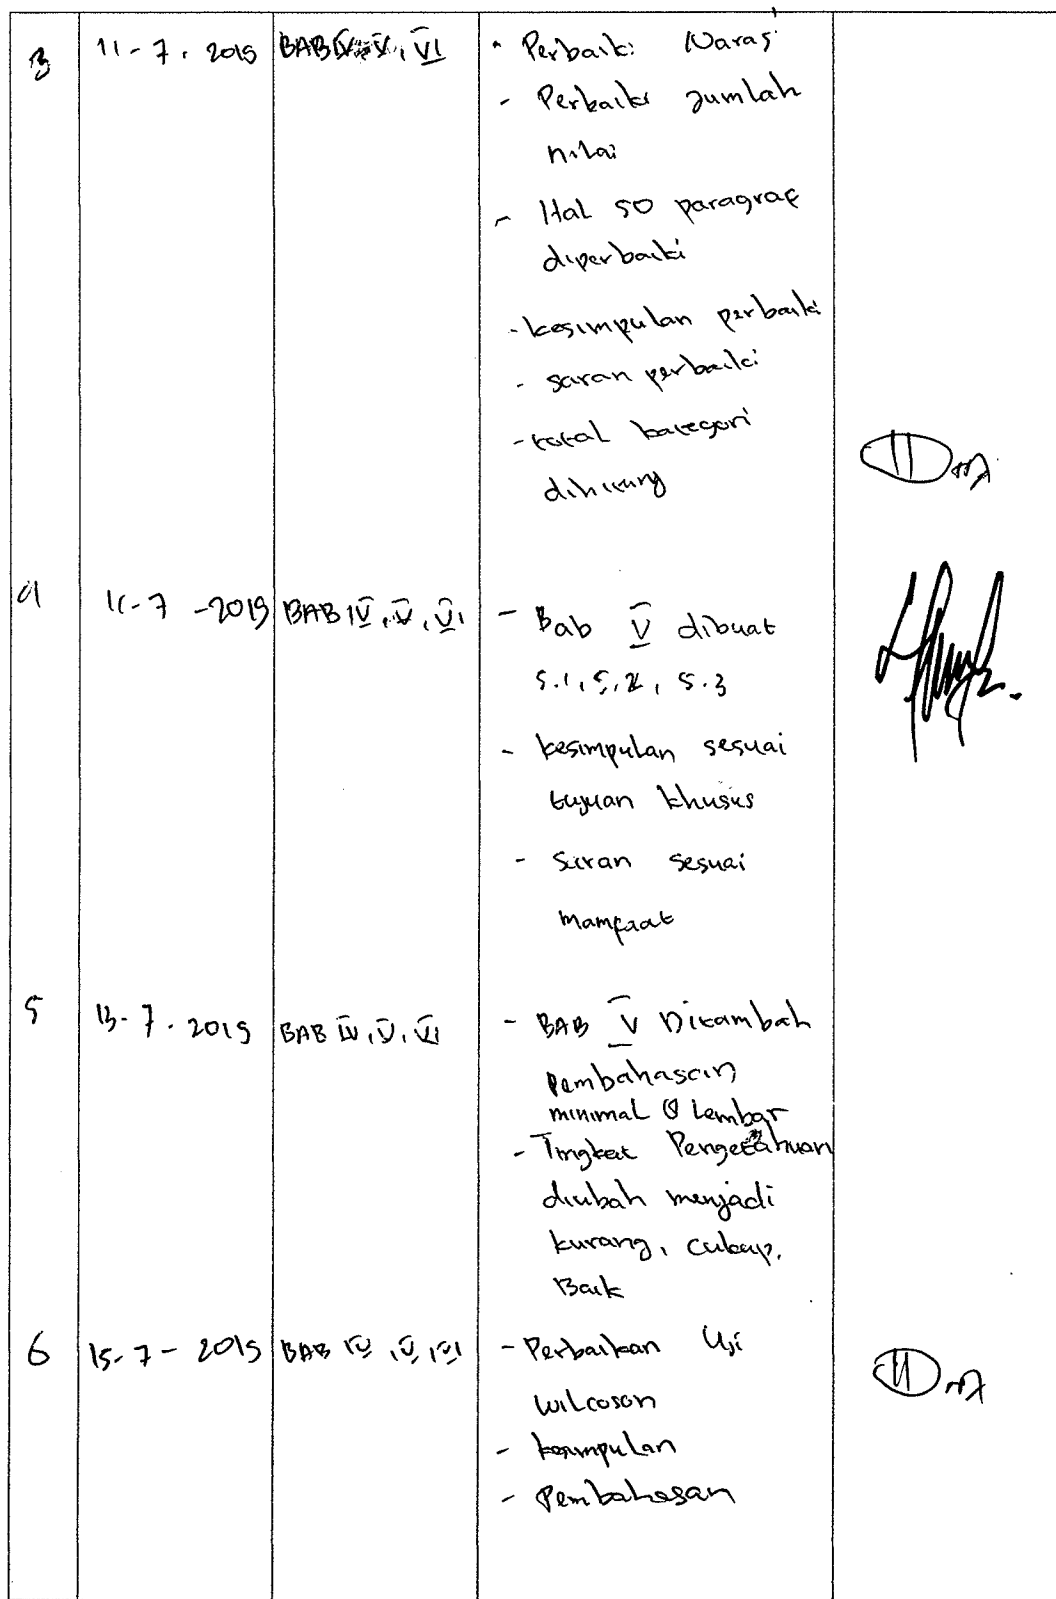 3 11-7-2019 BAB IV, V, VI - Perbaiki Narasi
- Perbaiki Jumlah
nilai
- Hal 50 paragraf
diperbaiki
- kesimpulan perbaiki
- saran perbaiki
- total kategori
dihitung
4 11-7-2019 BAB IV, V, VI - Bab V dibuat
5.1, 5.2, 5.3
- kesimpulan sesuai
tujuan khusus
- Saran sesuai
mamfaat
5 13-7-2019 BAB IV, V, VI - BAB V Ditambah
pembahasan
minimal 8 Lembar
- Tingkat Pengetahuan
diubah menjadi
kurang, cukup,
Baik
6 15-7-2019 BAB IV, V, VI - Perbaikan Uji
wilcoson
- kesimpulan
- Pembahasan